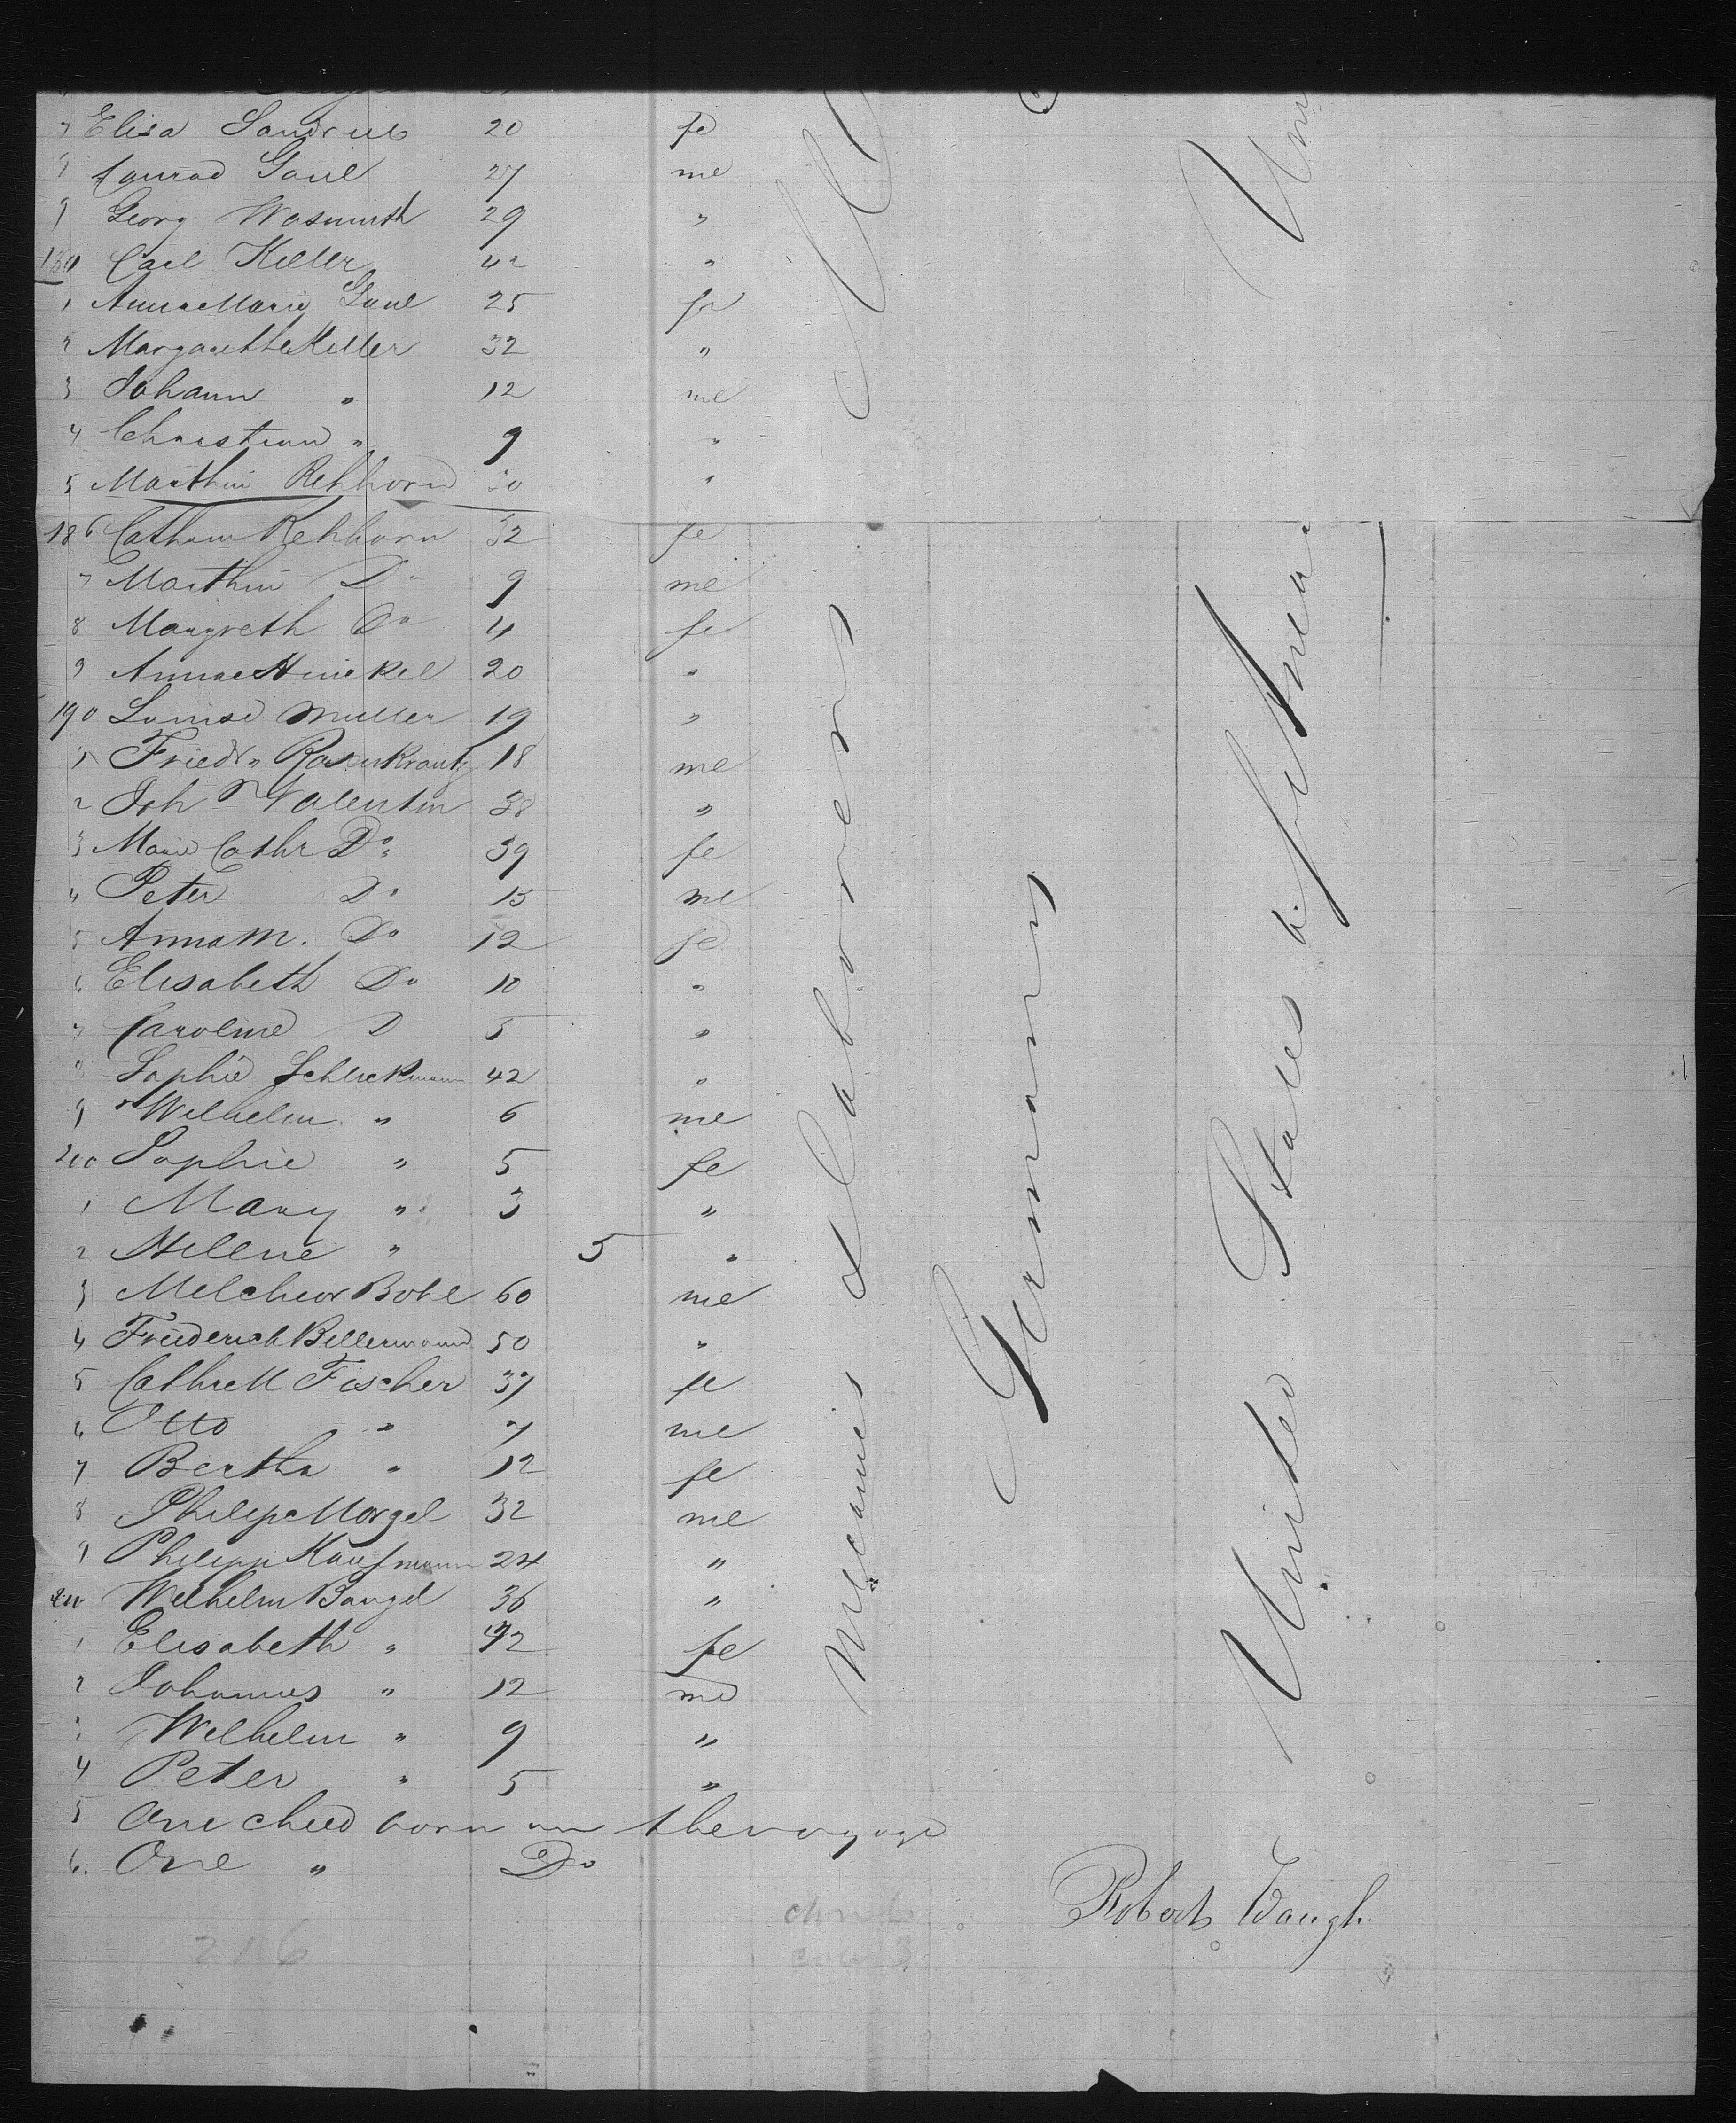 7 Elisa 20 fe
Conrad Gaul 27 me
9 Georg Wasmuth 29 "
180 Carl Keller 42 "
1 Anna Marie Gaul 25 fe
2 Margarethe Keller 32 "
3 Johann " 12 me
4 Christian " 9 "
5 Marthin Rehhorn 30 "
186 Catharin Rehhorn 32 fe
7 Marthin Do 9 me
8 Margreth Do 4 fe
9 Anna Hinekel 20 "
190 Louise Muller 19 "
1 Friedr" Rosenkrantz 18 me
2 Joh Valentin 38 "
3 Marie Cathr Do 39 fe
4 Peter Do 15 me
5 Anna M. Do 12 fe
6 Elisabeth Do 10 "
7 Caroline D 5 "
8 Sophie Schlickmann 42 "
9 Wilhelm " 6 me
200 Sophie " 5 fe
1 Mary " 3 "
2 Hellene " 5 "
3 Melchior Bohl 60 me
4 Friederich Bellermann 50 "
5 Cath Fischer 37 fe
6 Otto " 7 me
7 Bertha " 12 fe
8 Philipp Morgel 32 me
9 Philipp Kaufmann 24 "
210 Wilhelm Bangel 36 "
1 Elisabeth " 32 fe
2 Johannes " 12 me
3 Wilhelm " 9 "
4 Peter " 5 "
5 One child born on the voyage
6. One " Do
Mecanics & Laborers
Germany
United States of America
Robert Waugh
216